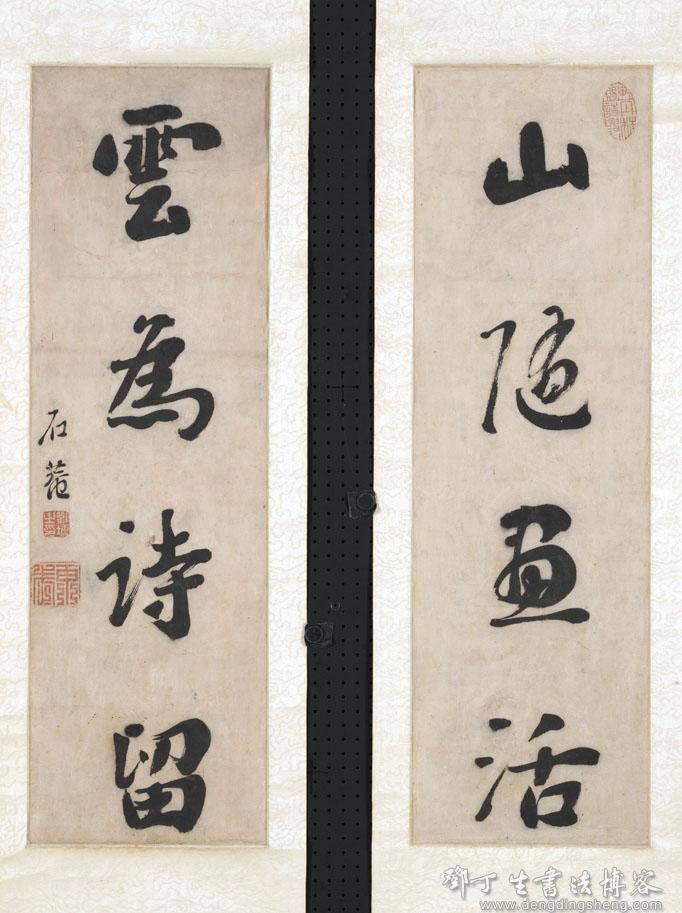 山隨畫活
雲為詩留
石菴
鄧丁生書法博客
www.dengdingsheng.com